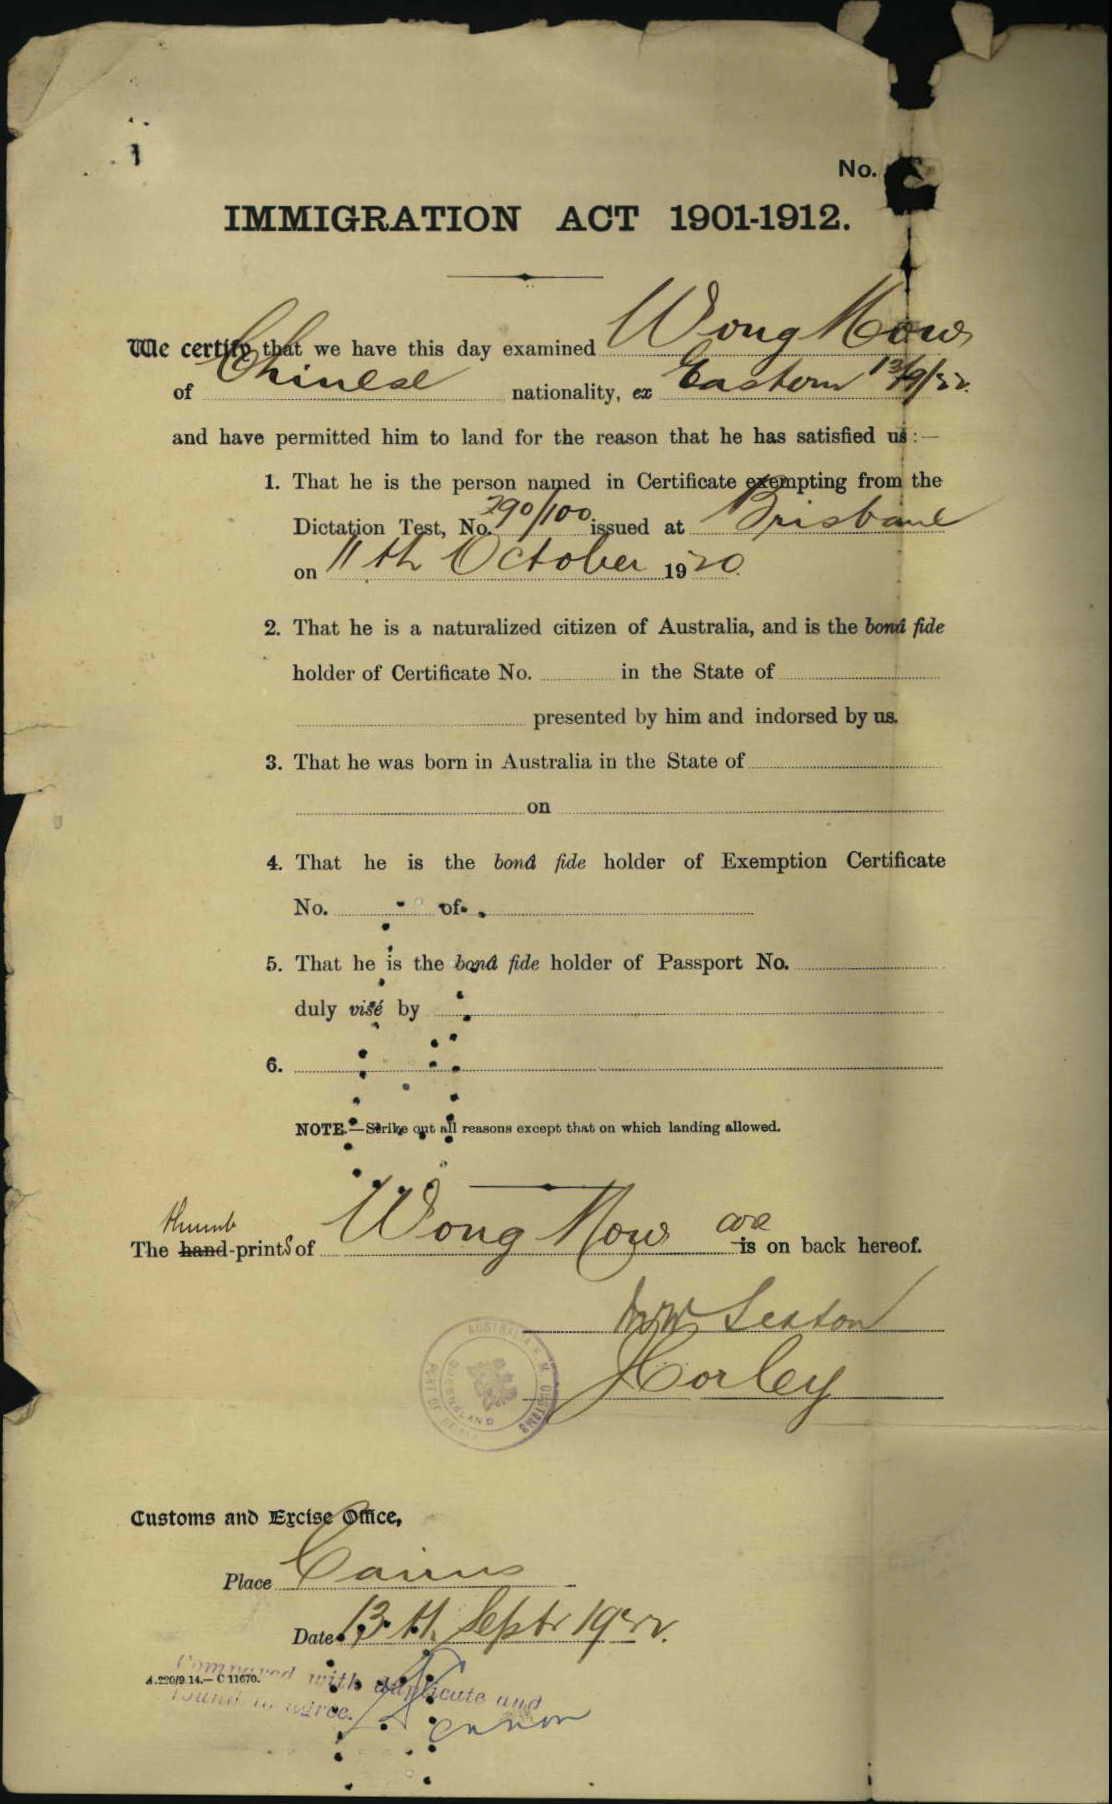 No.
IMMIGRATION ACT 1901-1912.
We certify that we have this day examined Wong Mow
of Chinese nationality, ex Eastern 13/9/22.
and have permitted him to land for the reason that he has satisfied us:—
1. That he is the person named in Certificate exempting from the
Dictation Test, No. 290/100 issued at Brisbane
on 11th October 1920
2. That he is a naturalized citizen of Australia, and is the bonâ fide
holder of Certificate No. in the State of
presented by him and indorsed by us.
3. That he was born in Australia in the State of
on
4. That he is the bonâ fide holder of Exemption Certificate
No. of
5. That he is the bonâ fide holder of Passport No.
duly visé by
6.
NOTE.—Strike out all reasons except that on which landing allowed.
thumb
The hand-prints of Wong Mow are is on back hereof.
Sexton
Horley
AUSTRALIA
CUSTOMS
PORT OF
QUEENSLAND
Customs and Excise Office,
Place Cairns
Date 13th Septr 1922.
A.220/9.14.—C 11670.
Compared with duplicate and
found to agree.